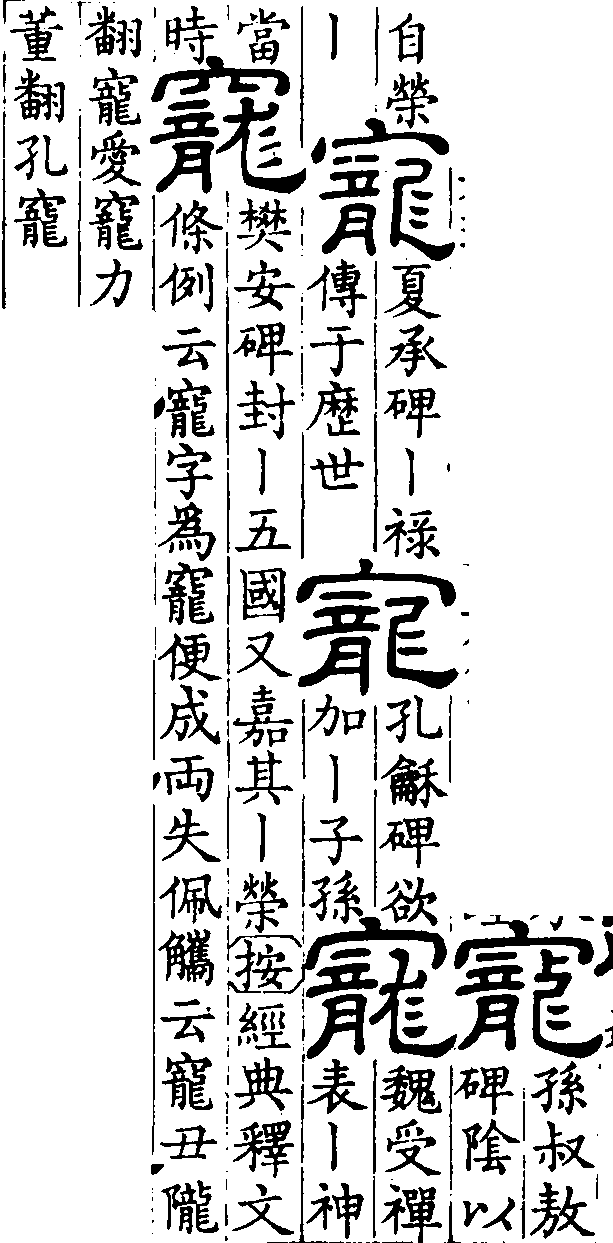 寵
孫叔敖
碑陰以
自榮
丨
寵
夏承碑丨祿
傳于歷世
寵
孔龢碑欲
加丨子孫
寵
魏受禪
表丨神
當
時
竉
樊安碑封丨五國又嘉其丨榮按經典釋文
條例云寵字爲竉便成兩失佩觿云寵丑隴
翻寵愛竉力
董翻孔竉